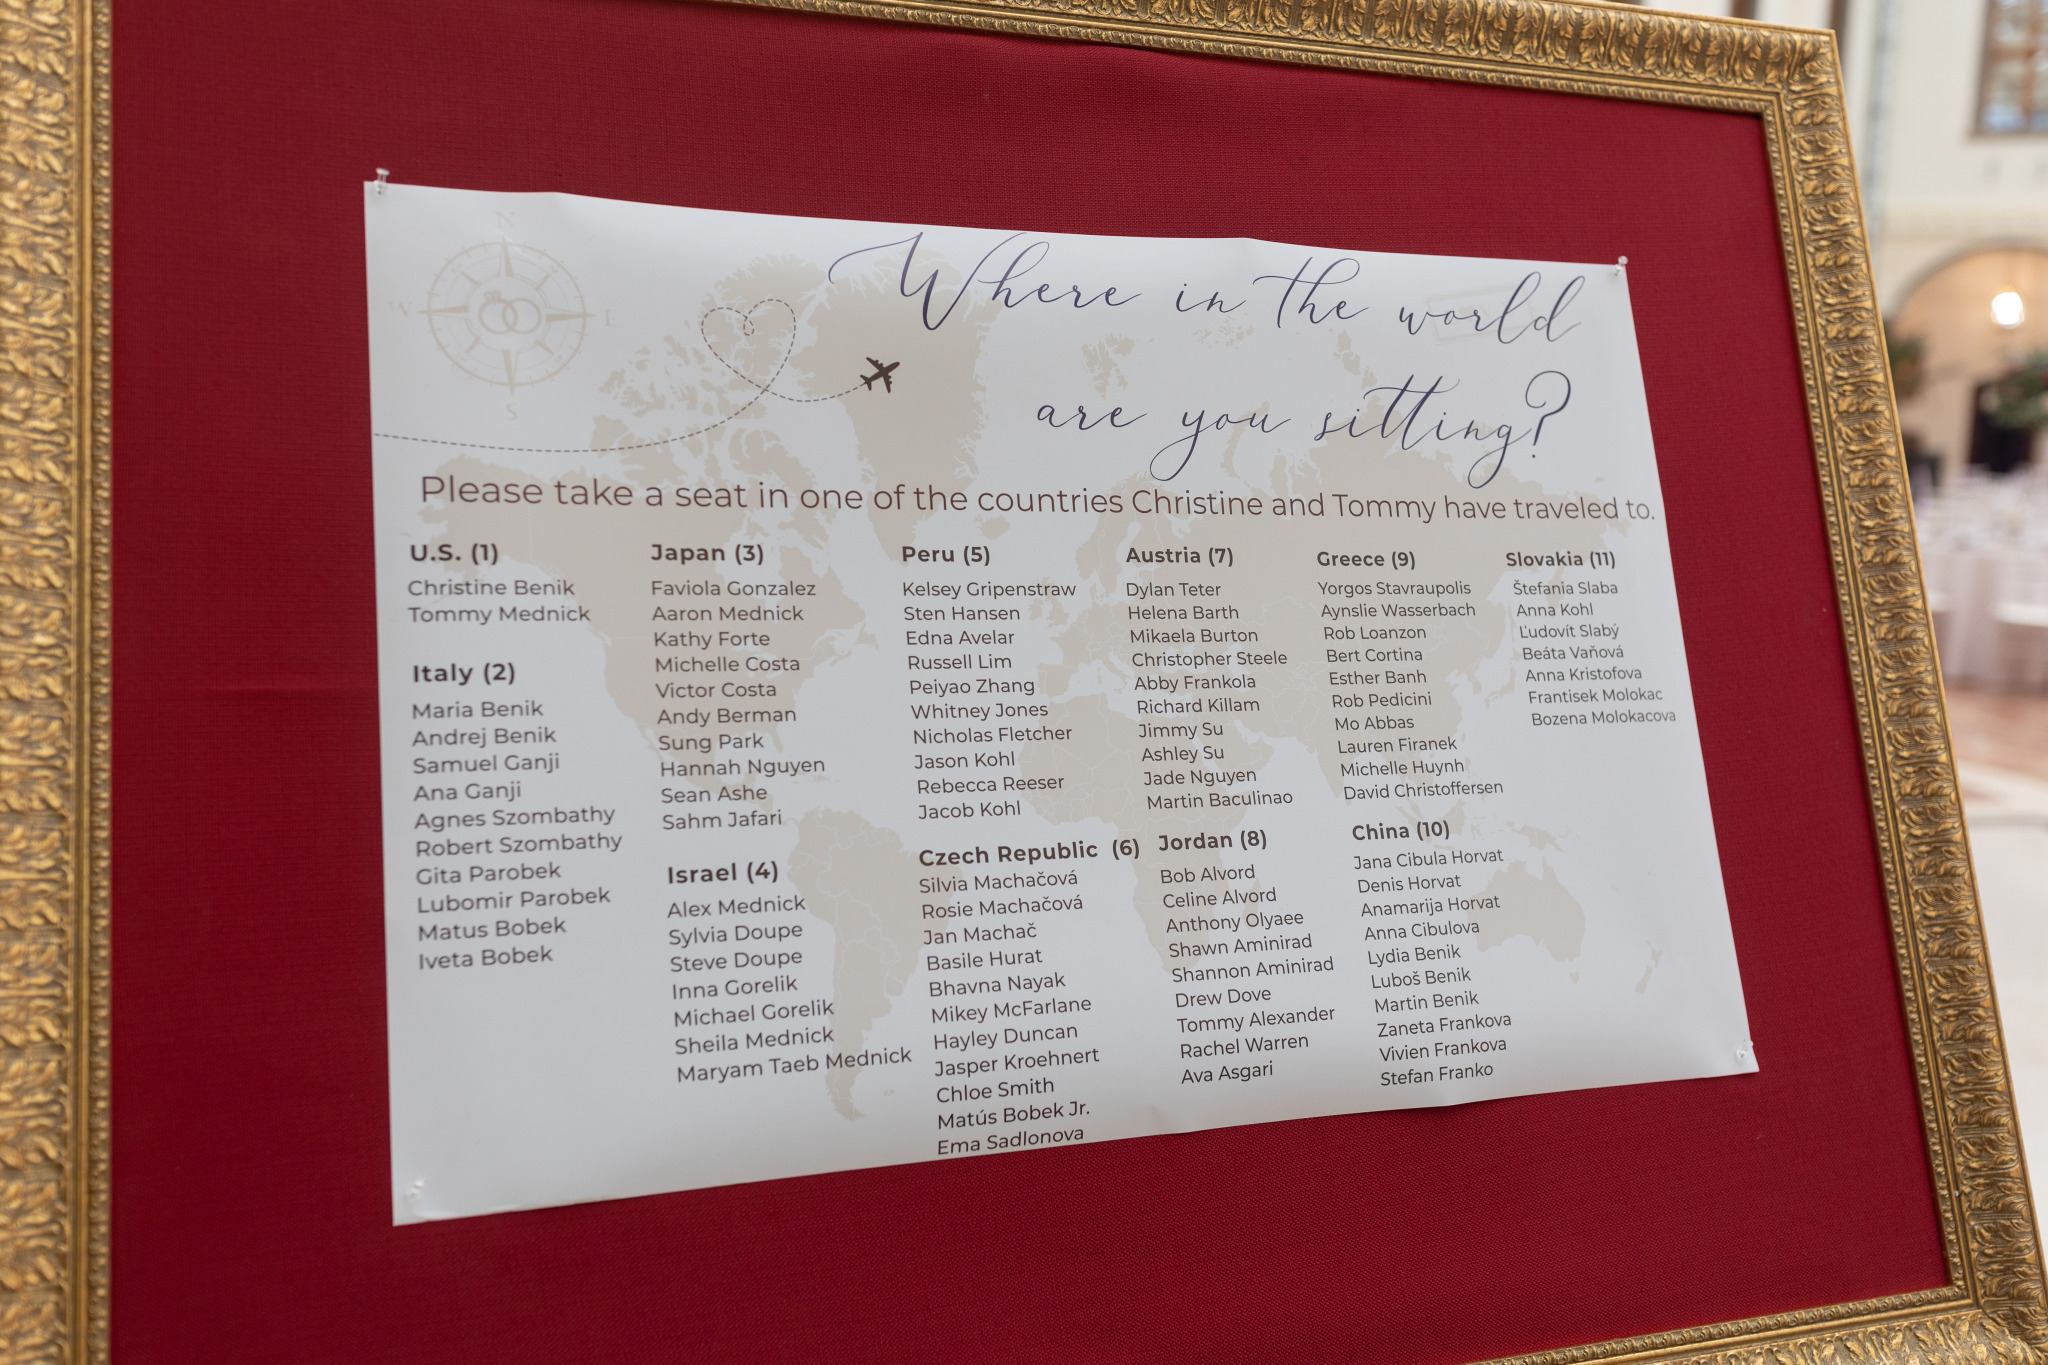 N
W
E
S
Where in the world
are you sitting?
Please take a seat in one of the countries Christine and Tommy have traveled to.
U.S. (1)
Christine Benik
Tommy Mednick
Italy (2)
Maria Benik
Andrej Benik
Samuel Ganji
Ana Ganji
Agnes Szombathy
Robert Szombathy
Gita Parobek
Lubomir Parobek
Matus Bobek
Iveta Bobek
Japan (3)
Faviola Gonzalez
Aaron Mednick
Kathy Forte
Michelle Costa
Victor Costa
Andy Berman
Sung Park
Hannah Nguyen
Sean Ashe
Sahm Jafari
Israel (4)
Alex Mednick
Sylvia Doupe
Steve Doupe
Inna Gorelik
Michael Gorelik
Sheila Mednick
Maryam Taeb Mednick
Peru (5)
Kelsey Gripenstraw
Sten Hansen
Edna Avelar
Russell Lim
Peiyao Zhang
Whitney Jones
Nicholas Fletcher
Jason Kohl
Rebecca Reeser
Jacob Kohl
Czech Republic (6)
Silvia Machačová
Rosie Machačová
Jan Machač
Basile Hurat
Bhavna Nayak
Mikey McFarlane
Hayley Duncan
Jasper Kroehnert
Chloe Smith
Matús Bobek Jr.
Ema Sadlonova
Austria (7)
Dylan Teter
Helena Barth
Mikaela Burton
Christopher Steele
Abby Frankola
Richard Killam
Jimmy Su
Ashley Su
Jade Nguyen
Martin Baculinao
Jordan (8)
Bob Alvord
Celine Alvord
Anthony Olyaee
Shawn Aminirad
Shannon Aminirad
Drew Dove
Tommy Alexander
Rachel Warren
Ava Asgari
Greece (9)
Yorgos Stavraupolis
Aynslie Wasserbach
Rob Loanzon
Bert Cortina
Esther Banh
Rob Pedicini
Mo Abbas
Lauren Firanek
Michelle Huynh
David Christoffersen
China (10)
Jana Cibula Horvat
Denis Horvat
Anamarija Horvat
Anna Cibulova
Lydia Benik
Luboš Benik
Martin Benik
Zaneta Frankova
Vivien Frankova
Stefan Franko
Slovakia (11)
Štefania Slaba
Anna Kohl
Ľudovít Slabý
Beáta Vaňová
Anna Kristofova
Frantisek Molokac
Bozena Molokacova